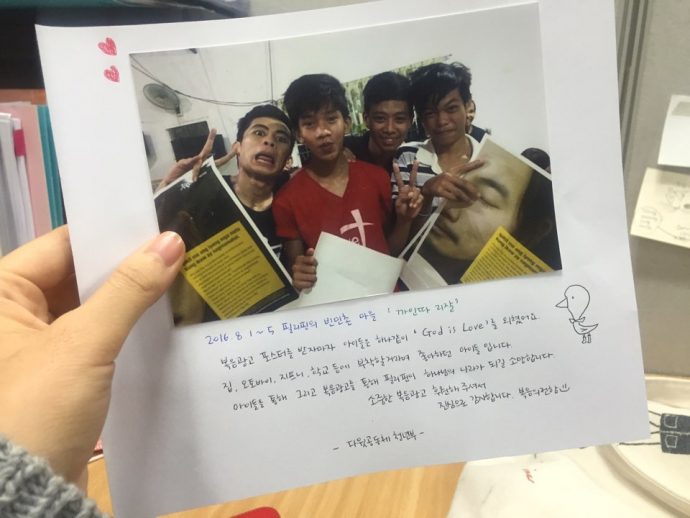 2016. 8. 1 ~ 5 필리핀의 빈민촌 마을 '까인따 리잘'
복음광고 포스터를 받자마자 아이들은 하나같이 'God is Love'를 외쳤어요.
집, 오토바이, 지프니, 학교 등에 부착할거라며 좋아하던 아이들입니다.
아이들을 통해 그리고 복음광고를 통해 필리핀이 하나님의 나라가 되길 소망합니다.
소중한 복음광고 후원해 주셔서
진심으로 감사합니다. 복음의전함
- 다윗공동체 청년부 -